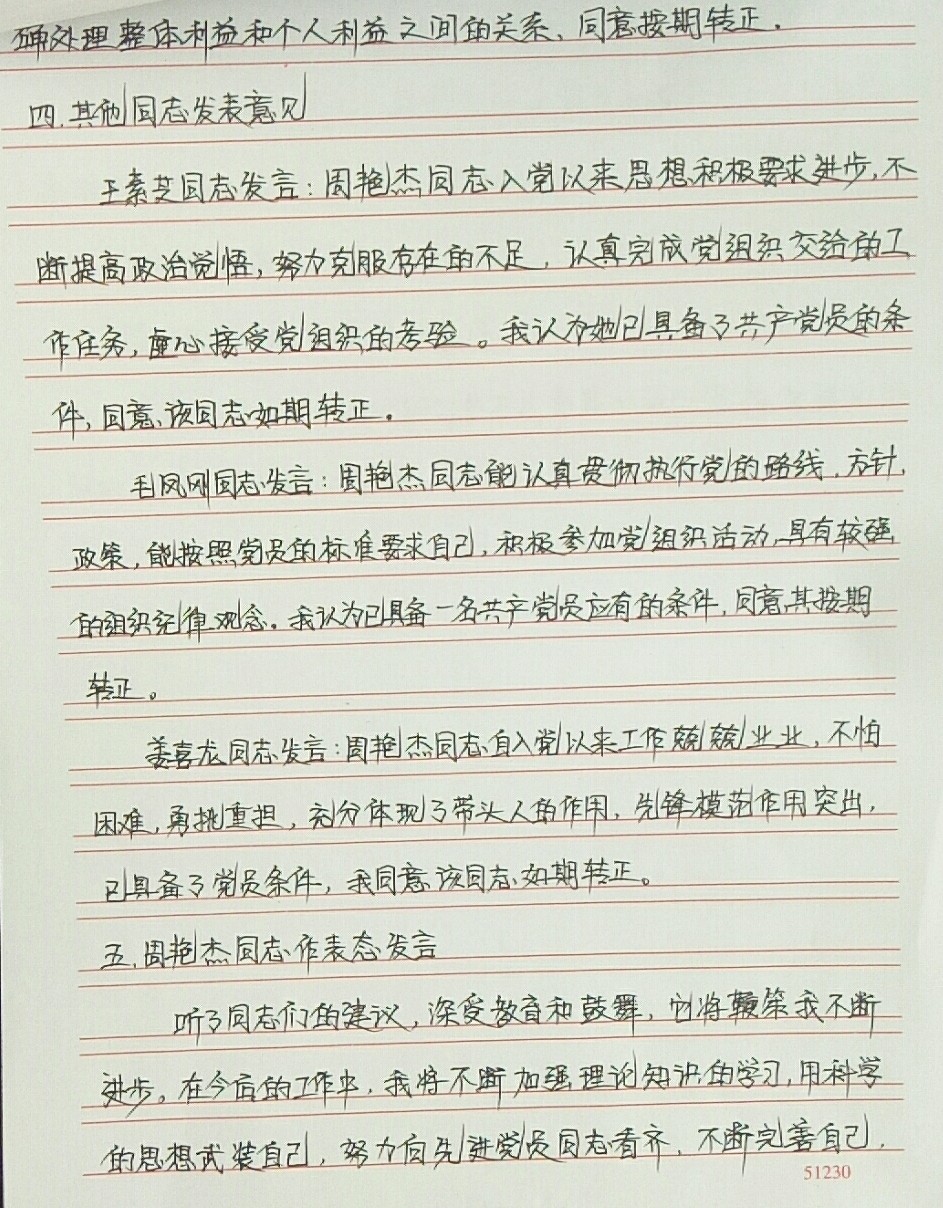 确处理整体利益和个人利益之间的关系、同意按期转正.
四.其他同志发表意见
王素芝同志发言:周艳杰同志入党以来思想积极要求进步,不
断提高政治觉悟,努力克服存在的不足,认真完成党组织交给的工
作任务,虚心接受党组织的考验。我认为她已具备了共产党员的条
件,同意该同志如期转正。
毛凤刚同志发言:周艳杰同志能认真贯彻执行党的路线、方针、
政策,能按照党员的标准要求自己,积极参加党组织活动,具有较强
的组织纪律观念。我认为已具备一名共产党员应有的条件,同意其按期
转正。
姜喜龙同志发言:周艳杰同志自入党以来工作兢兢业业,不怕
困难,勇挑重担,充分体现了带头人的作用,先锋模范作用突出,
已具备了党员条件,我同意该同志如期转正。
五.周艳杰同志作表态发言
听了同志们的建议,深受教育和鼓舞,它将鞭策我不断
进步。在今后的工作中,我将不断加强理论知识的学习,用科学
的思想武装自己,努力向先进党员同志看齐,不断完善自己,
51230